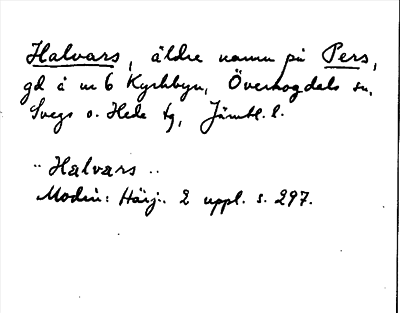 Halvars, äldre namn på Pers,
gd å nr 6 Kyrkbyn, Överhogdals sn,
Svegs o. Hede tg, Jämtl. l.
.. Halvars ..
Modin: Härj. 2 uppl. s. 297.